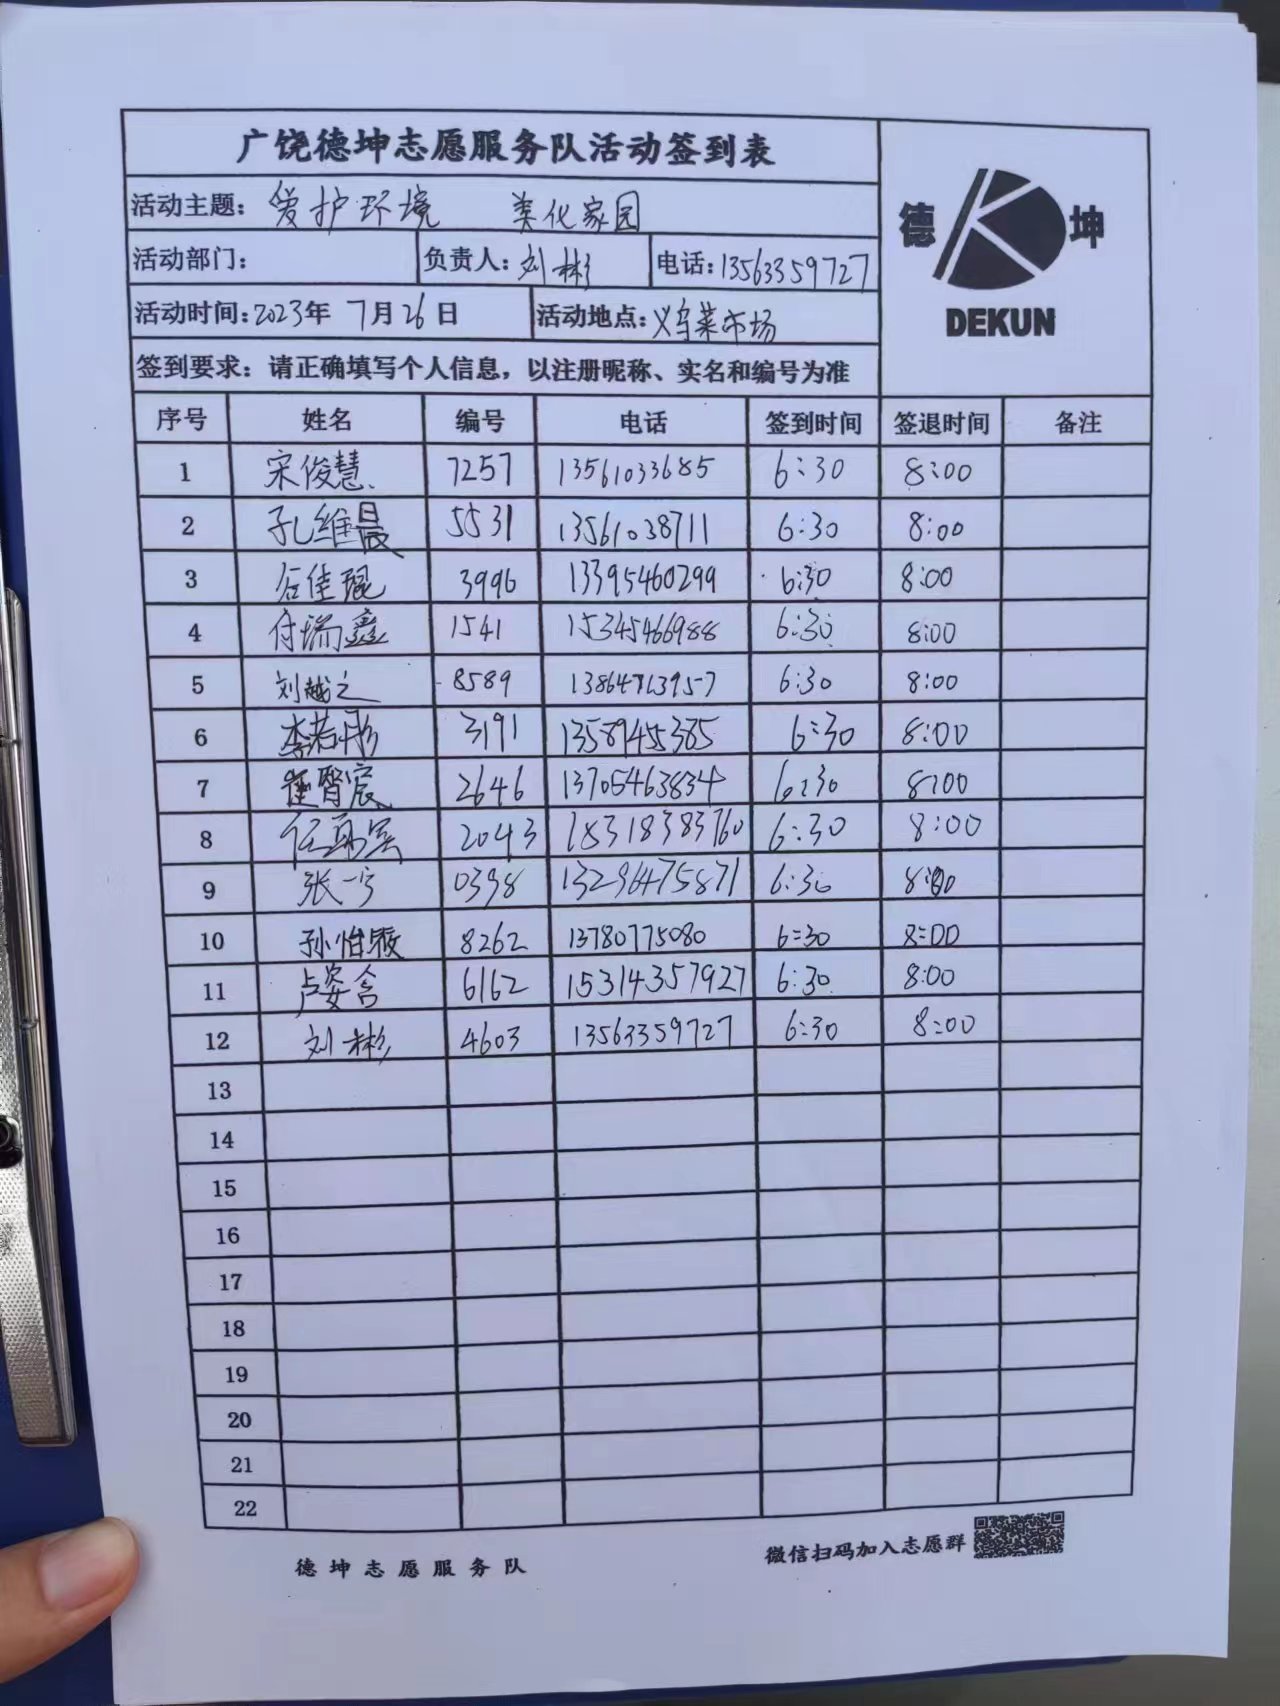 广饶德坤志愿服务队活动签到表
德 坤
DEKUN
活动主题：爱护环境 美化家园
活动部门： 负责人：刘彬 电话：13563359727
活动时间：2023年 7月26日 活动地点：义乌菜市场
签到要求：请正确填写个人信息，以注册昵称、实名和编号为准
序号 姓名 编号 电话 签到时间 签退时间 备注
1 宋俊慧 7257 13561033685 6:30 8:00
2 孔维晨 5531 13561038711 6:30 8:00
3 佳琨 3996 13395460299 6:30 8:00
4 付瑞鑫 1541 15345466988 6:30 8:00
5 刘越之 8589 6:30 8:00
6 李若彤 3191 13589455385 6:30 8:00
7 2646 13705463834 6:30 8:00
8 2043 18318383760 6:30 8:00
9 张一宁 0398 13296475871 6:30 8:00
10 孙怡璇 8262 13780775080 6:30 8:00
11 卢姿含 6162 15314357927 6:30 8:00
12 刘彬 4603 13563359727 6:30 8:00
13
14
15
16
17
18
19
20
21
22
德坤志愿服务队 微信扫码加入志愿群